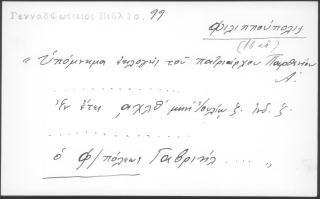 Γενναδιωτικος Βιβλιο. 99
Φιλιππούπολις
(16 αἰ)
" Ὑπόμνημα ἐκλογῆς τοῦ πατριάρχου Παρθενίου
Α΄.
. . . . . . . . . . . .
Ἐν ἔτει ͵αχλθ΄ μηνὶ Ἰουλίῳ ζ. ἰνδ. ζ.
. . . . . . . . . . . .
ὁ Φ/πόλεως Γαβριήλ .... "